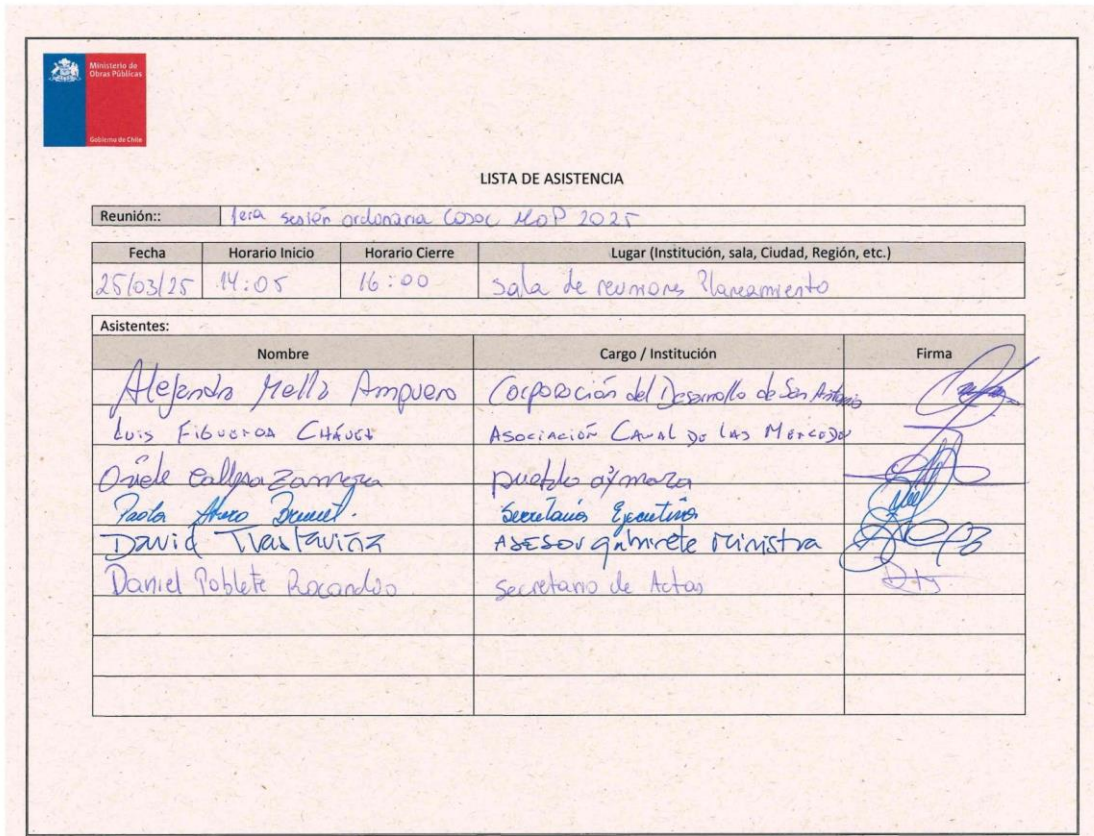 Ministerio de
Obras Públicas
Gobierno de Chile
LISTA DE ASISTENCIA
Reunión:: 1era sesión ordonaria Cosoc MOP 2025
Fecha Horario Inicio Horario Cierre Lugar (Institución, sala, Ciudad, Región, etc.)
25/03/25 14:05 16:00 Sala de reuniones Planeamiento
Asistentes:
Nombre Cargo / Institución Firma
Alejandro Mella Ampuero Corporación del Desarrollo de San Antonio
Luis Figueroa Chávez Asociación Canal de las Mercedes
Zamora pueblo aymara
Paola Secretaria Ejecutiva
David Trastaviña Asesor gabinete ministra
Daniel Poblete Secretario de Actas